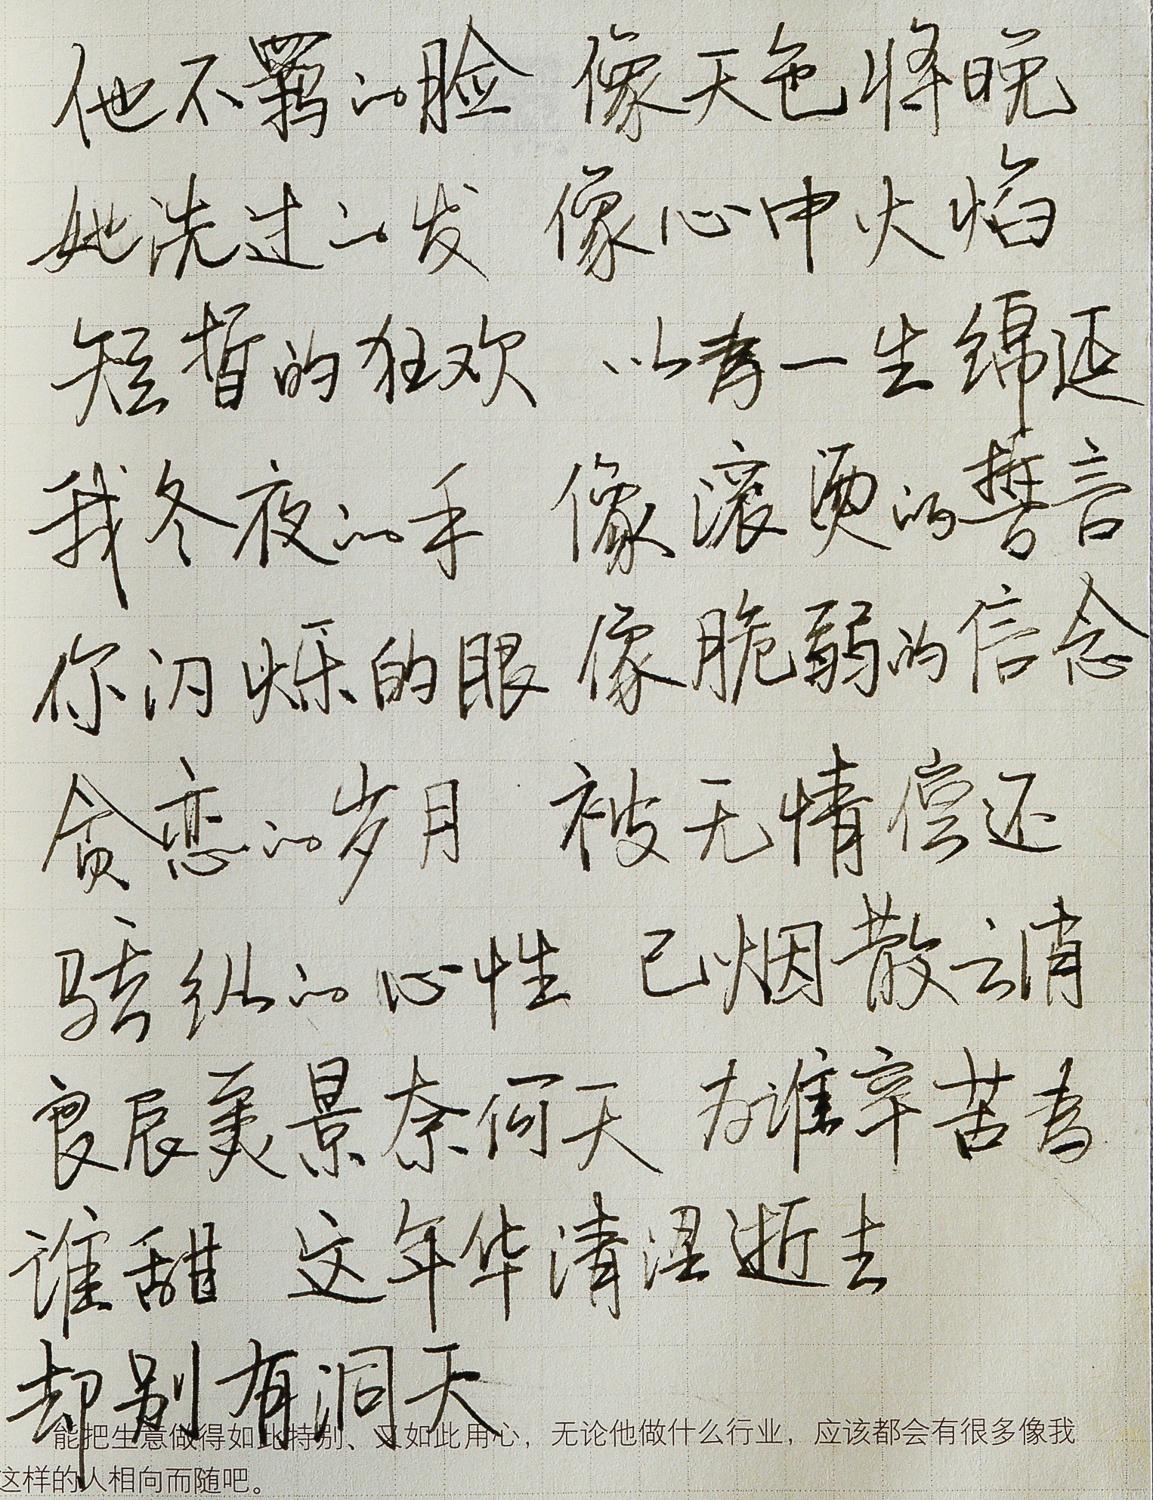 他不羁的脸 像天色将晚
她洗过的发 像心中火焰
短暂的狂欢 以为一生绵延
我冬夜的手 像滚烫的誓言
你闪烁的眼 像脆弱的信念
贪恋的岁月 被无情偿还
骄纵的心性 已烟散云消
良辰美景奈何天 为谁辛苦为
谁甜 这年华清澀逝去
却别有洞天
能把生意做得如此特别、又如此用心，无论他做什么行业，应该都会有很多像我
这样的人相向而随吧。